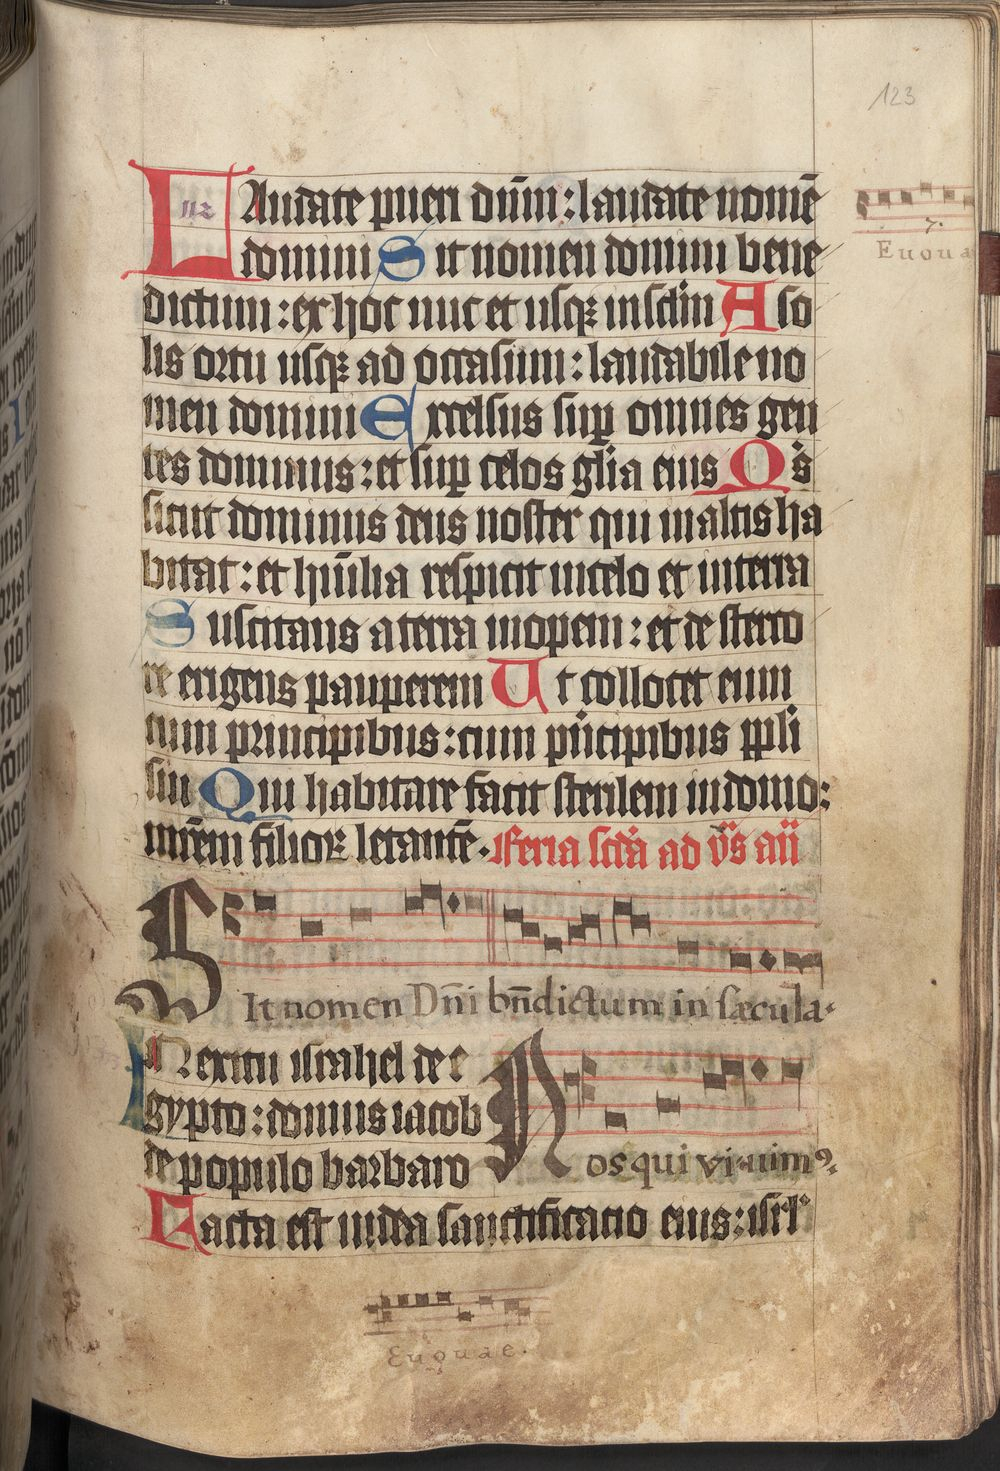 123
Laudate pueri dn̄m : laudate nomē
112
domini Sit nomen domini bene
dictum : ex hoc nūc et usqꝫ in sclm̄ A so
lis ortu usqꝫ ad occasum : laudabile no
men domini Excelsus suꝑ omnes gen
tes dominus : et suꝑ celos gl̄ia eius Qͥs
sicut dominus deus noster qui in altis ha
bitat : et hūilia respicit in celo et in terra
Suscitans a terra inopem : et de sterco
re erigens pauperem Ut collocet eum
cum principibus : cum pͥncipibus ppl̄i
sui Qui habitare facit sterilem in domo :
mrēm filioꝝ letantē. Feria scd̄a ad vr̄s añ
Sit nomen Dn̄i bn̄dictum in sæcula.
In exitu israhel de e
gypto : domus iacob
de populo barbaro
Nos qui vivimꝰ.
Facta est iudea sanctificatio eius : isrl̄
7.
Euoua
Euouae.